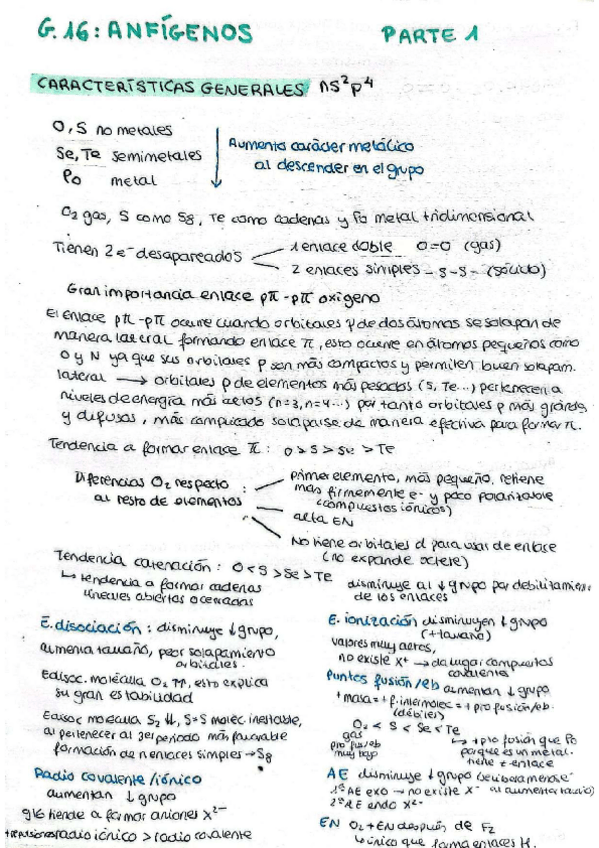 G.16: ANFÍGENOS PARTE 1
CARACTERÍSTICAS GENERALES ns²p⁴
O, S no metales
Se, Te semimetales
Po metal
Aumenta carácter metálico
al descender en el grupo
O₂ gas, S como S8, Te como cadenas y Po metal tridimensional
Tienen 2e⁻ desapareados
1 enlace doble O=O (gas)
2 enlaces simples -S-S- (sólido)
Gran importancia enlace pπ-pπ oxígeno
El enlace pπ-pπ ocurre cuando orbitales p de dos átomos se solapan de
manera lateral formando enlace π, esto ocurre en átomos pequeños como
O y N ya que sus orbitales p son más compactos y permiten buen solapam.
lateral → orbitales p de elementos más pesados (S, Te...) pertenecen a
niveles de energía más altos (n=3, n=4...) por tanto orbitales p más grandes
y difusos, más complicado solaparse de manera efectiva para formar π.
Tendencia a formar enlace π : O > S > Se > Te
Diferencias O₂ respecto
al resto de elementos :
primer elemento, más pequeño, retiene
más firmemente e⁻ y poco polarizable
(compuestos iónicos)
alta EN
No tiene orbitales d para usar de enlace
(no expande octete)
Tendencia catenación : O < S > Se > Te
↳ tendencia a formar cadenas
lineales abiertas o cerradas
disminuye al ↓ grupo por debilitamien
de los enlaces
E. disociación : disminuye ↓ grupo,
aumenta tamaño, peor solapamiento
orbitales.
Edisoc. molécula O₂ ↑↑, esto explica
su gran estabilidad
Edisoc molécula S₂ ↓↓, S=S molec. inestable,
al pertenecer al 3er periodo más favorable
formación de n enlaces simples → S8
Radio covalente /iónico
aumentan ↓ grupo
g16 tiende a formar aniones X²⁻
+repulsiones radio iónico > radio covalente
E. ionización disminuyen ↓ grupo
(+ tamaño)
valores muy altos,
no existe X⁺ → da lugar compuestos
covalentes
Puntos fusión/eb aumentan ↓ grupo
+ masa = + f. intermolec = + pto fusión/eb.
(débiles)
O₂ < S < Se < Te
gas
pto fus/eb
muy bajo
↳ + pto fusión que Po
porque es un metal.
tiene ≠ enlace
AE disminuye ↓ grupo
1ª AE exo → no existe X⁻
2ª AE endo X²⁻
EN O₂ + EN después de F₂
↳ único que forma enlaces H.